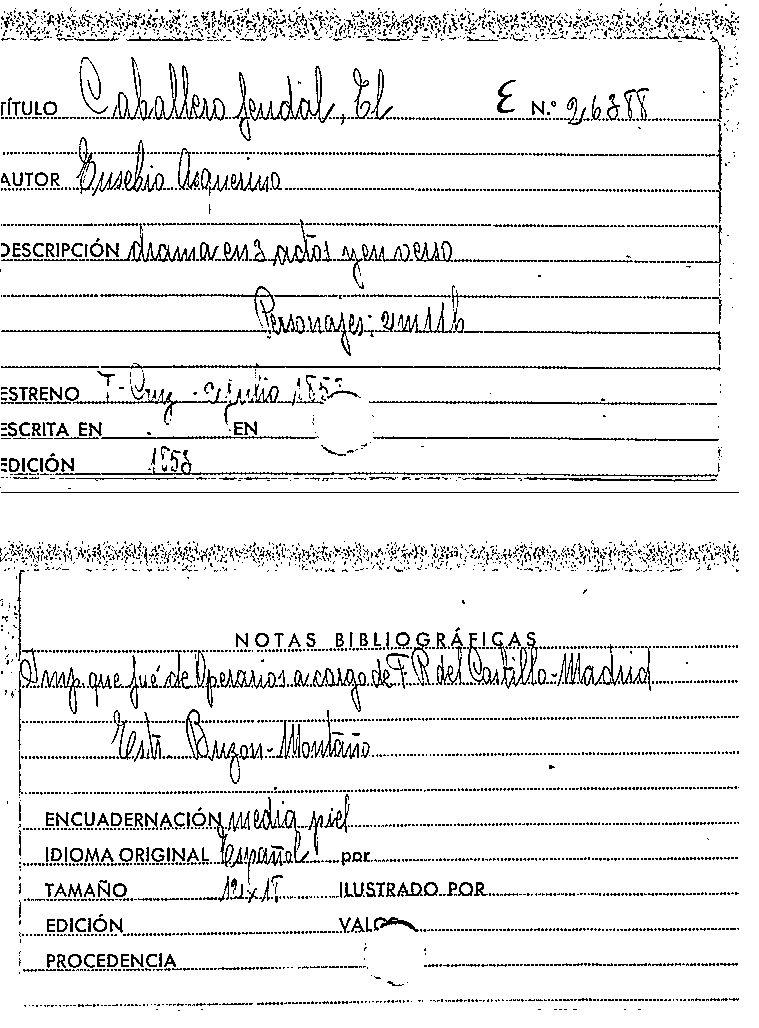 TÍTULO Caballero feudal, El E N.º 26388
AUTOR Eusebio Asquerino
DESCRIPCIÓN drama en 3 actos y en verso
Personajes: 2m11h
ESTRENO T-Cruz - julio
ESCRITA EN EN
EDICIÓN 1858
NOTAS BIBLIOGRÁFICAS
Imp. que fué de Operarios a cargo de F R del Castillo-Madrid
Estr Buzon-Montaño
ENCUADERNACIÓN media piel
IDIOMA ORIGINAL Español por
TAMAÑO ILUSTRADO POR
EDICIÓN VALOR
PROCEDENCIA